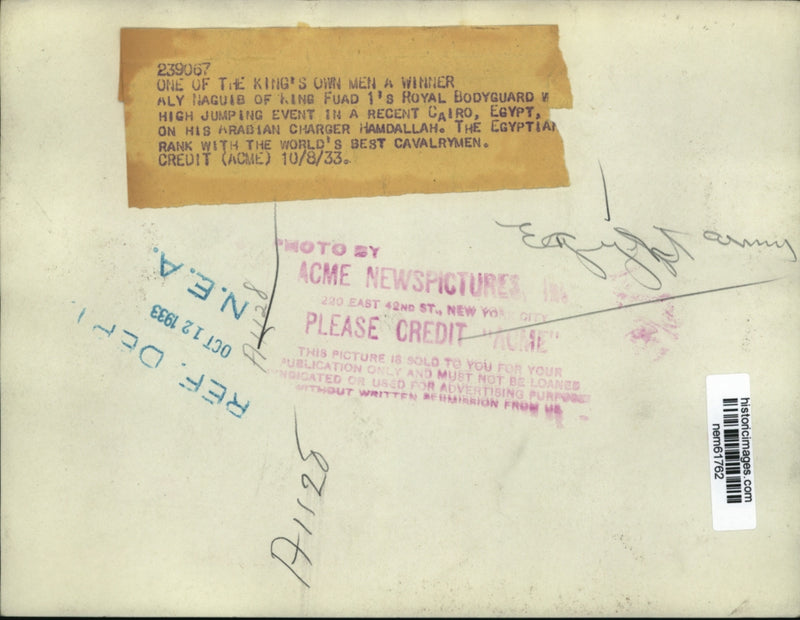 239067
ONE OF THE KING'S OWN MEN A WINNER
ALY NAGUIB OF KING FUAD I'S ROYAL BODYGUARD W
HIGH JUMPING EVENT IN A RECENT CAIRO, EGYPT,
ON HIS ARABIAN CHARGER HAMDALLAH. THE EGYPTIAN
RANK WITH THE WORLD'S BEST CAVALRYMEN.
CREDIT (ACME) 10/8/33.
Egypt army
PHOTO BY
ACME NEWSPICTURES,
220 EAST 42ND ST., NEW YORK CITY
PLEASE CREDIT "ACME"
THIS PICTURE IS SOLD TO YOU FOR YOUR
PUBLICATION ONLY AND MUST NOT BE LOANED
SYNDICATED OR USED FOR ADVERTISING PURPOSES
WITHOUT WRITTEN PERMISSION FROM US
N.E.A.
OCT 12 1933
REF. DEPT.
A1128
A1128
historicimages.com
nem61762